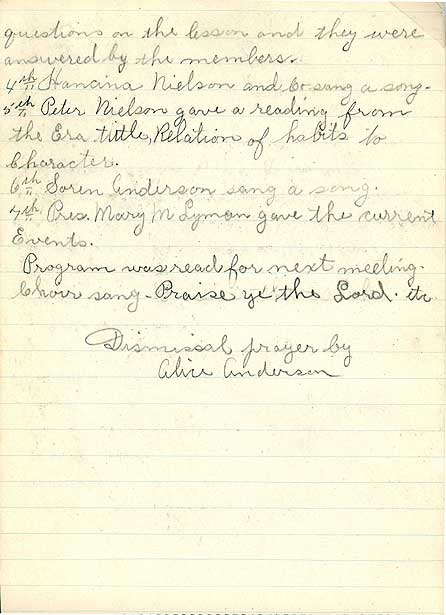 questions on the lesson and they were
answered by the members.
4th Hancina Nielson and Co. sang a song.
5th Peter Nielson gave a reading from
the Era tittle, Relation of habits to
Character.
6th Soren Anderson sang a song.
7th Pres. Mary M Lyman gave the current
Events.
Program was read for next meeting.
Choir sang - Praise ye the Lord. etc
Dismissal prayer by
Alice Anderson